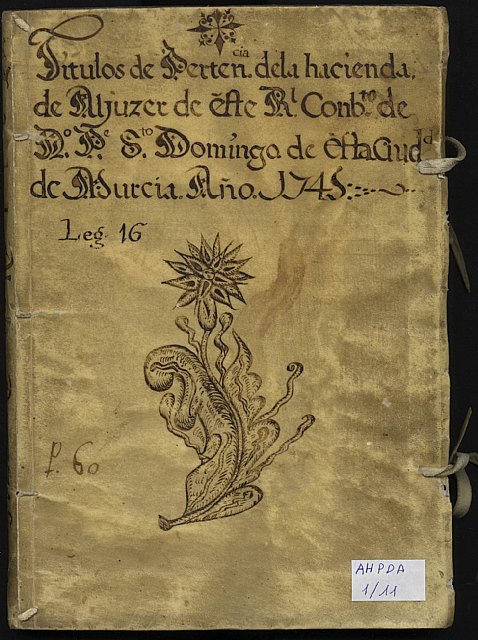 Titulos de Perten.cia de la hacienda,
de Aljuzer de este Rl. Conb.to de
N.o P.e S.to Domingo de esta Ciud.d
de Murcia. Año. 1745.
Leg. 16
p. 60
AHPDA
1/11